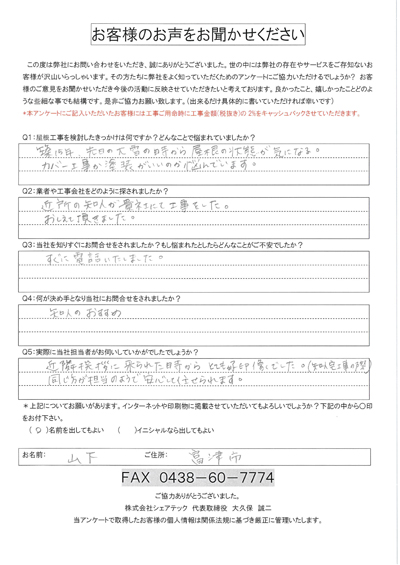 お客様のお声をお聞かせください
この度は弊社にお問い合わせをいただき、誠にありがとうございました。世の中には弊社の存在やサービスをご存知ないお
客様が沢山いらっしゃいます。その方たちに弊社をよく知っていただくためのアンケートにご協力いただけるでしょうか？ お客
様のご意見をお聞かせいただき今後の活動に反映させていただきたいと考えております。良かったこと、嬉しかったことどのよ
うな些細な事でも結構です。是非ご協力お願い致します。（出来るだけ具体的に書いていただければ幸いです）
*本アンケートにご記入いただいたお客様には工事ご用命時に工事金額(税抜き)の 2%をキャッシュバックさせていただきます。
Q1：屋根工事を検討したきっかけは何ですか？どんなことで悩まれていましたか？
築15年、先日の大雪の時から屋根の状態が気になる。
カバー工事か塗装がいいのか悩んでいます。
Q2：業者や工事会社をどのように探されましたか？
近所の知人が貴社にて工事をした。
おしえて頂きました。
Q3：当社を知りすぐにお問合せをされましたか？もし悩まれたとしたらどんなことがご不安でしたか？
すぐに電話いたしました。
Q4：何が決め手となり当社にお問合せをされましたか？
知人のおすすめ
Q5：実際に当社担当者がお伺いしていかがでしたでしょうか？
近隣挨拶に来られた時から とても好印象でした。
同じ方が担当のようで安心して任せられます。
＊上記についてお願いがあります。インターネットや印刷物に掲載させていただいてもよろしいでしょうか？下記の中から〇印
をお付下さい。
（ 〇 ）名前を出してもよい （ ）イニシャルなら出してもよい
お名前： 山下 ご住所： 富津市
FAX 0438－60－7774
ご協力ありがとうございました。
株式会社シェアテック 代表取締役 大久保 誠二
当アンケートで取得したお客様の個人情報は関係法規に基づき厳正に管理いたします。